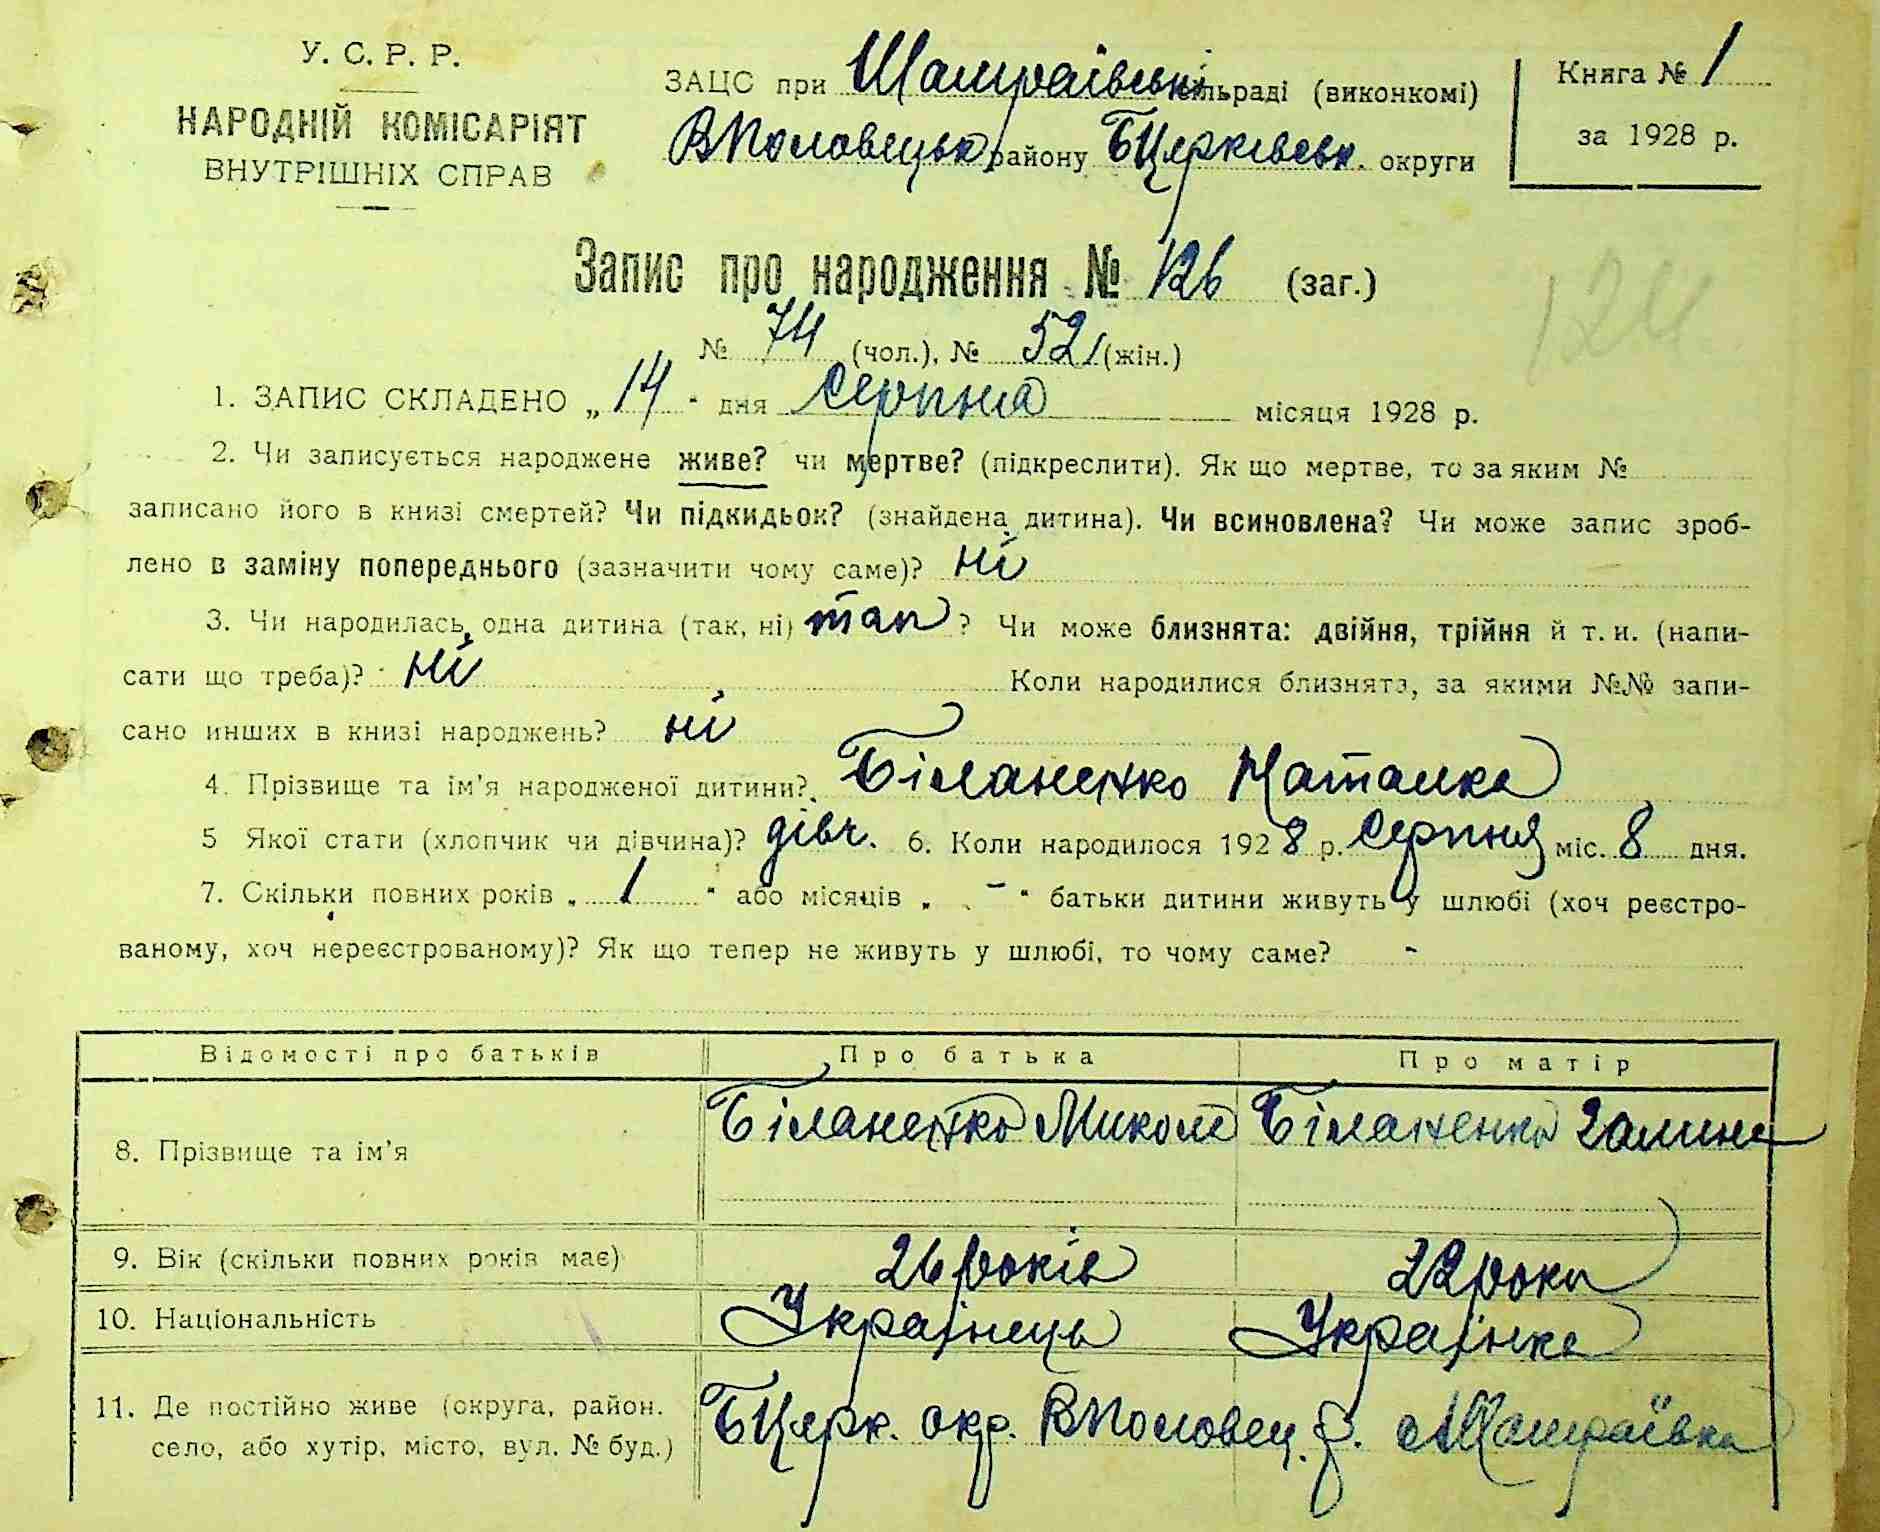 У. С. Р. Р.
НАРОДНІЙ КОМІСАРІЯТ
ВНУТРІШНІХ СПРАВ
ЗАЦС при Шамраївські сільраді (виконкомі)
ВПоловецьк району БЦерківськ. округи
Книга № 1
за 1928 р.
Запис про народження № 126 (заг.)
124
№ 74 (чол.), № 52 (жін.)
1. ЗАПИС СКЛАДЕНО „14“ дня серпня місяця 1928 р.
2. Чи записується народжене живе? чи мертве? (підкреслити). Як що мертве, то за яким №
записано його в книзі смертей? Чи підкидьок? (знайдена дитина). Чи всиновлена? Чи може запис зроб-
лено в заміну попереднього (зазначити чому саме)? ні
3. Чи народилась одна дитина (так, ні) так ? Чи може близнята: двійня, трійня й т. и. (напи-
сати що треба)? ні Коли народилися близнята, за якими №№ запи-
сано инших в книзі народжень? ні
4. Прізвище та ім'я народженої дитини? Біланенко Наталка
5 Якої стати (хлопчик чи дівчина)? дівч. 6. Коли народилося 1928 р. серпня міс. 8 дня.
7. Скільки повних років „ 1 “ або місяців „ - “ батьки дитини живуть у шлюбі (хоч реєстро-
ваному, хоч нереєстрованому)? Як що тепер не живуть у шлюбі, то чому саме? -
Відомості про батьків Про батька Про матір
8. Прізвище та ім'я Біланенко Микола Біланенко Галина
9. Вік (скільки повних років має) 26 років 22 роки
10. Національність Українець Українка
11. Де постійно живе (округа, район. БЦерк. окр. ВПоловец. р. с Шамраївка
село, або хутір, місто, вул. № буд.)